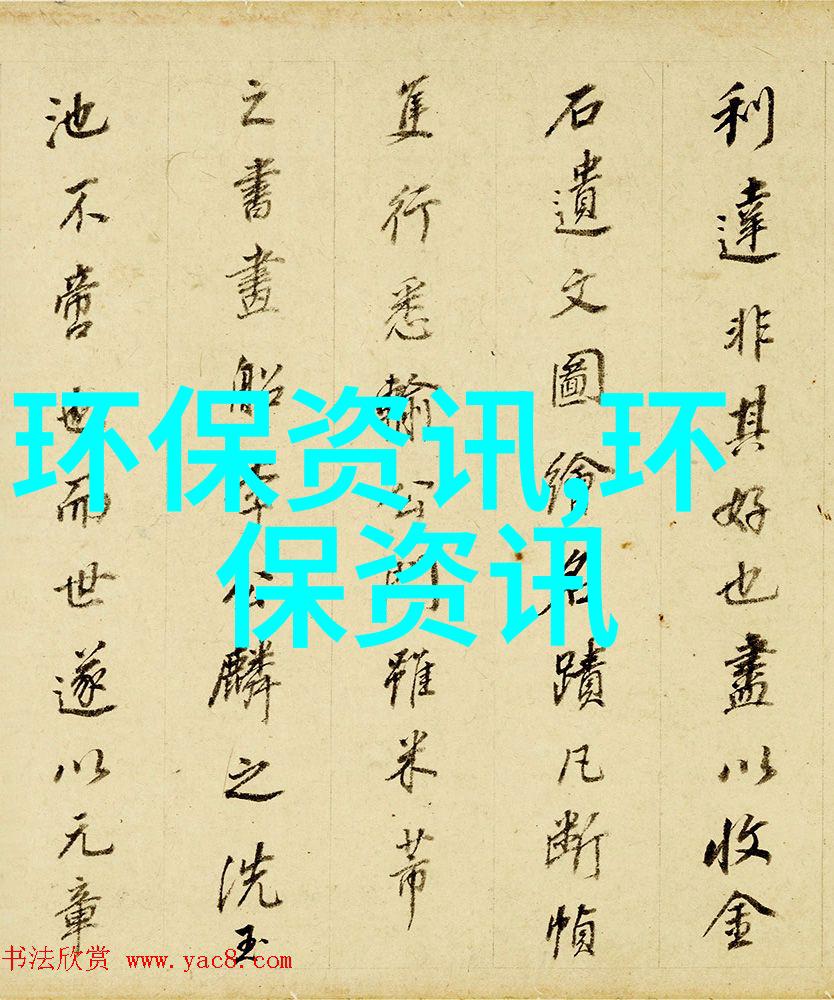 利達非其好也盡以收金
石遺文圖繪名蹟凡斷幀
隻行悉輸公門雖米芾
之書畫船李公麟之洗玉
池不啻也而世遂以元章
环保资讯,环
保资讯
书法欣赏 www.yac8.com